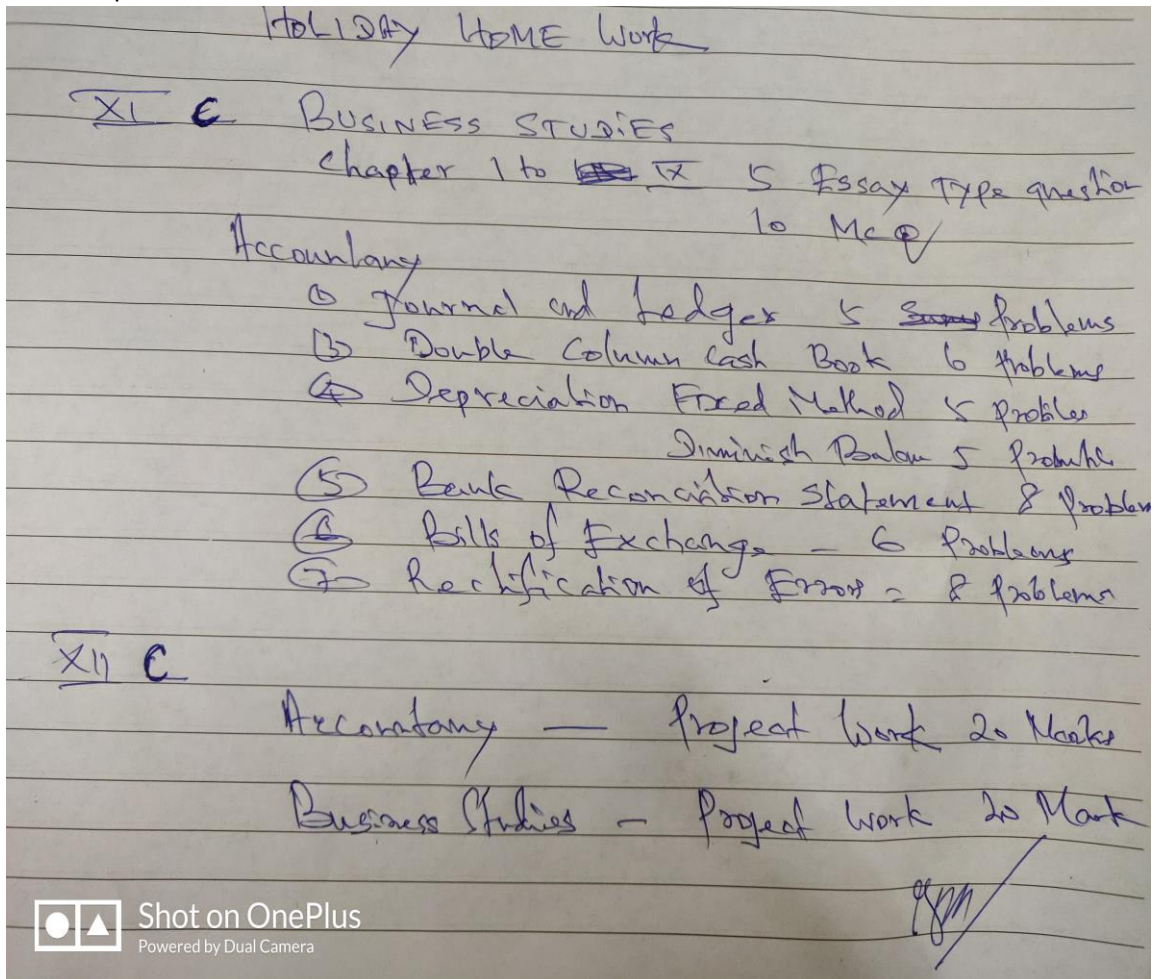 HOLIDAY HOME Work
XI C BUSINESS STUDIES
Chapter 1 to IX 5 Essay Type question
10 McQ
Accountany
① Journal and Ledger 5 Problems
③ Double Column Cash Book 6 Problems
④ Depreciation Fixed Method 5 Probles
Diminish 5
⑤ Bank Reconciation Statement 8 Problem
⑥ Bills of Exchange - 6 Problems
⑦ Rectification of Error = 8 Problems
XII C
Accountany — Project Work 20 Marks
Business Studies - Project Work 20 Mark
Shot on OnePlus
Powered by Dual Camera